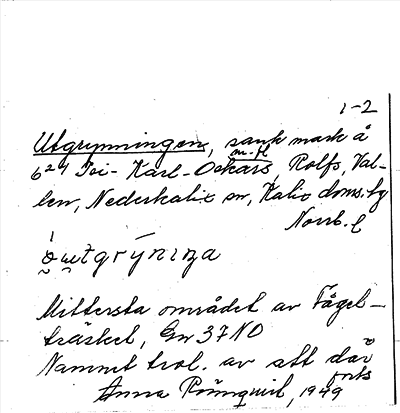 1-2
Utgrynningen, sank mark å
m.fl
624 Joi-Karl-Oskars, Rolfs, Val-
len, Nederkalix sn, Kalix doms.hg
Norrb. l
Mittersta området av Fågel-
träsket, Gr 37 NO
Namnet trol. av att där
forts
Anna Rönnquist, 1949